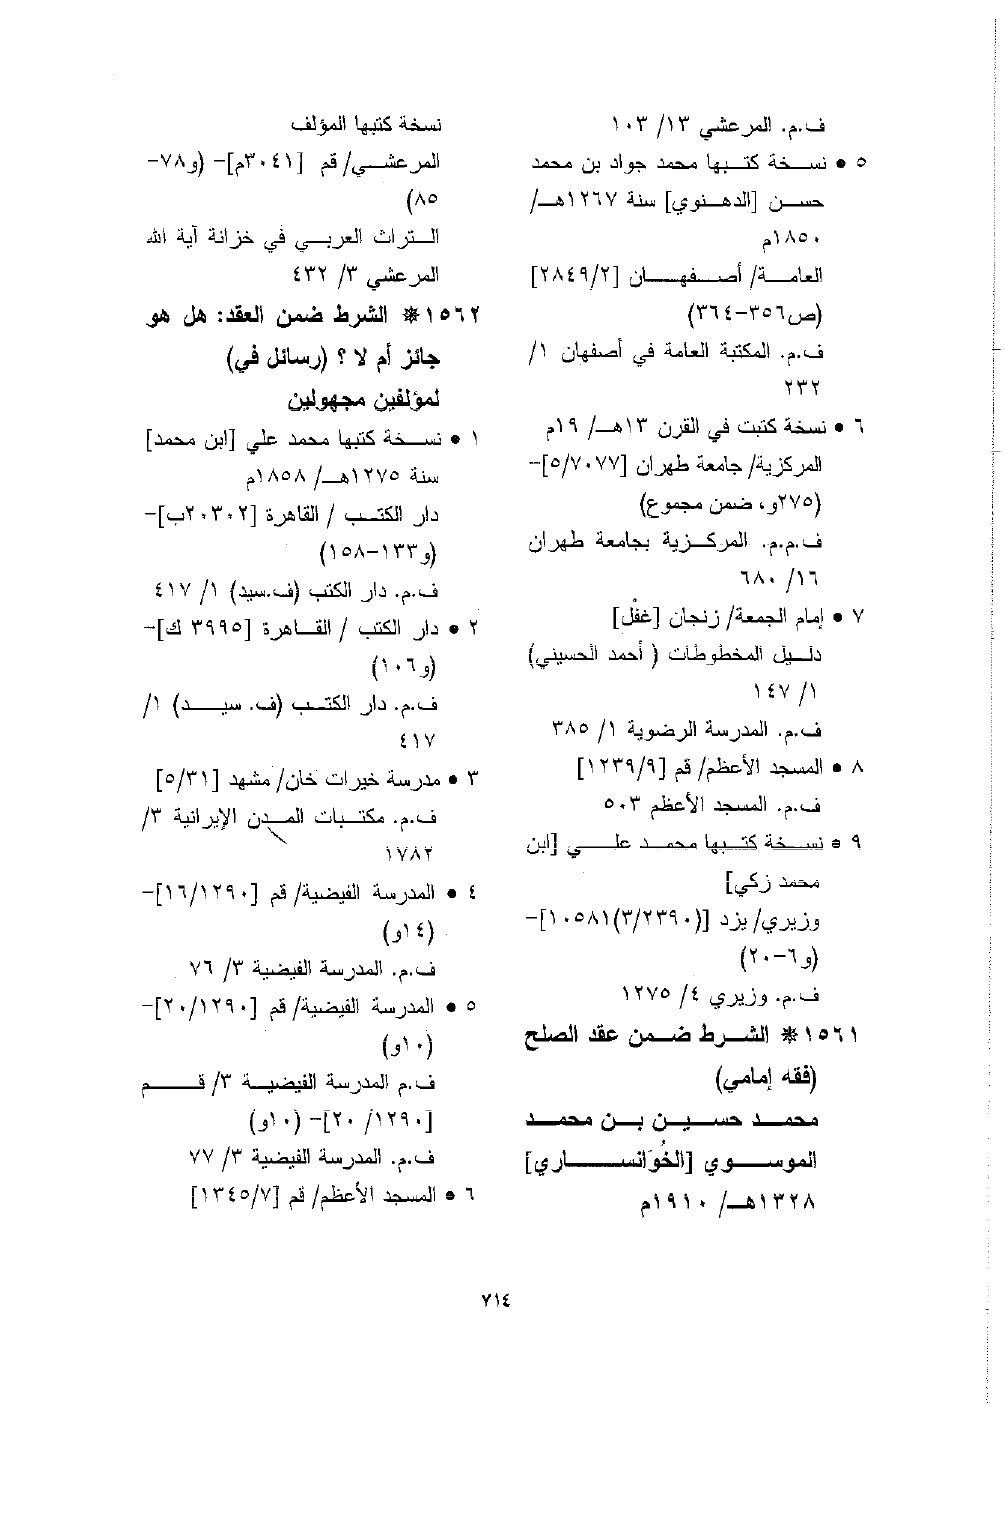 ف.م. المرعشي ١٣/ ١٠٣
٥ • نسخة كتبها محمد جواد بن محمد
حسن [الدهنوي] سنة ١٢٦٧هـ/
١٨٥٠م
العامة/ أصفهان [٢٨٤٩/٢]
(ص٣٥٦-٣٦٤)
ف.م. المكتبة العامة في أصفهان ١/
٢٣٢
٦ • نسخة كتبت في القرن ١٣هـ/ ١٩م
المركزية/ جامعة طهران [٥/٧٠٧٧]-
(٢٧٥و، ضمن مجموع)
ف.م.م. المركزية بجامعة طهران
١٦/ ٦٨٠
٧ • إمام الجمعة/ زنجان [غفْل]
دليل المخطوطات ( أحمد الحسيني)
١/ ١٤٧
ف.م. المدرسة الرضوية ١/ ٣٨٥
٨ • المسجد الأعظم/ قم [١٢٣٩/٩]
ف.م. المسجد الأعظم ٥٠٣
٩ • نسخة كتبها محمد علي [ابن
محمد زكي]
وزيري/ يزد [(٣/٢٣٩٠)١٠٥٨١]-
(و٦-٢٠)
ف.م. وزيري ٤/ ١٢٧٥
١٥٦١* الشرط ضمن عقد الصلح
(فقه إمامي)
محمد حسين بن محمد
الموسوي [الخُوَانساري]
١٣٢٨هـ/ ١٩١٠م
نسخة كتبها المؤلف
المرعشي/ قم [٣٠٤١م]- (و٧٨-
٨٥)
التراث العربي في خزانة آية الله
المرعشي ٣/ ٤٣٢
١٥٦٢* الشرط ضمن العقد: هل هو
جائز أم لا ؟ (رسائل في)
لمؤلفين مجهولين
١ • نسخة كتبها محمد علي [ابن محمد]
سنة ١٢٧٥هـ/ ١٨٥٨م
دار الكتب / القاهرة [٢٠٣٠٢ب]-
(و١٣٣-١٥٨)
ف.م. دار الكتب (ف.سيد) ١/ ٤١٧
٢ • دار الكتب / القاهرة [٣٩٩٥ ك]-
(و١٠٦)
ف.م. دار الكتب (ف. سيد) ١/
٤١٧
٣ • مدرسة خيرات خان/ مشهد [٥/٣١]
ف.م. مكتبات المدن الإيرانية ٣/
١٧٨٢
٤ • المدرسة الفيضية/ قم [١٦/١٢٩٠]-
(١٤و)
ف.م. المدرسة الفيضية ٣/ ٧٦
٥ • المدرسة الفيضية/ قم [٢٠/١٢٩٠]-
(١٠و)
ف.م المدرسة الفيضية ٣/ قم
[١٢٩٠/ ٢٠]- (١٠و)
ف.م. المدرسة الفيضية ٣/ ٧٧
٦ • المسجد الأعظم/ قم [١٣٤٥/٧]
٧١٤